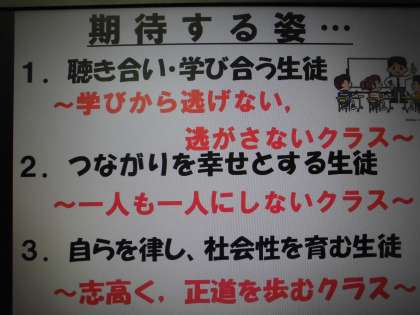 期待する姿…
1．聴き合い・学び合う生徒
～学びから逃げない，
逃がさないクラス～
2．つながりを幸せとする生徒
～一人も一人にしないクラス～
3．自らを律し、社会性を育む生徒
～志高く，正道を歩むクラス～